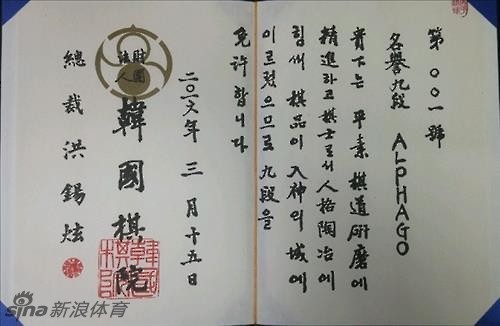 第〇〇一號
名譽九段 ALPHAGO
貴下는 平素 棋道硏磨에
精進하고 棋士로서 人格陶冶에
힘써 棋品이 入神의 域에
이르렀으므로 九段을
免許합니다
二〇一六年 三月十五日
財團法人 韓國棋院
總裁 洪錫炫
sina 新浪体育